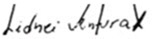 Lidnei Ventura X